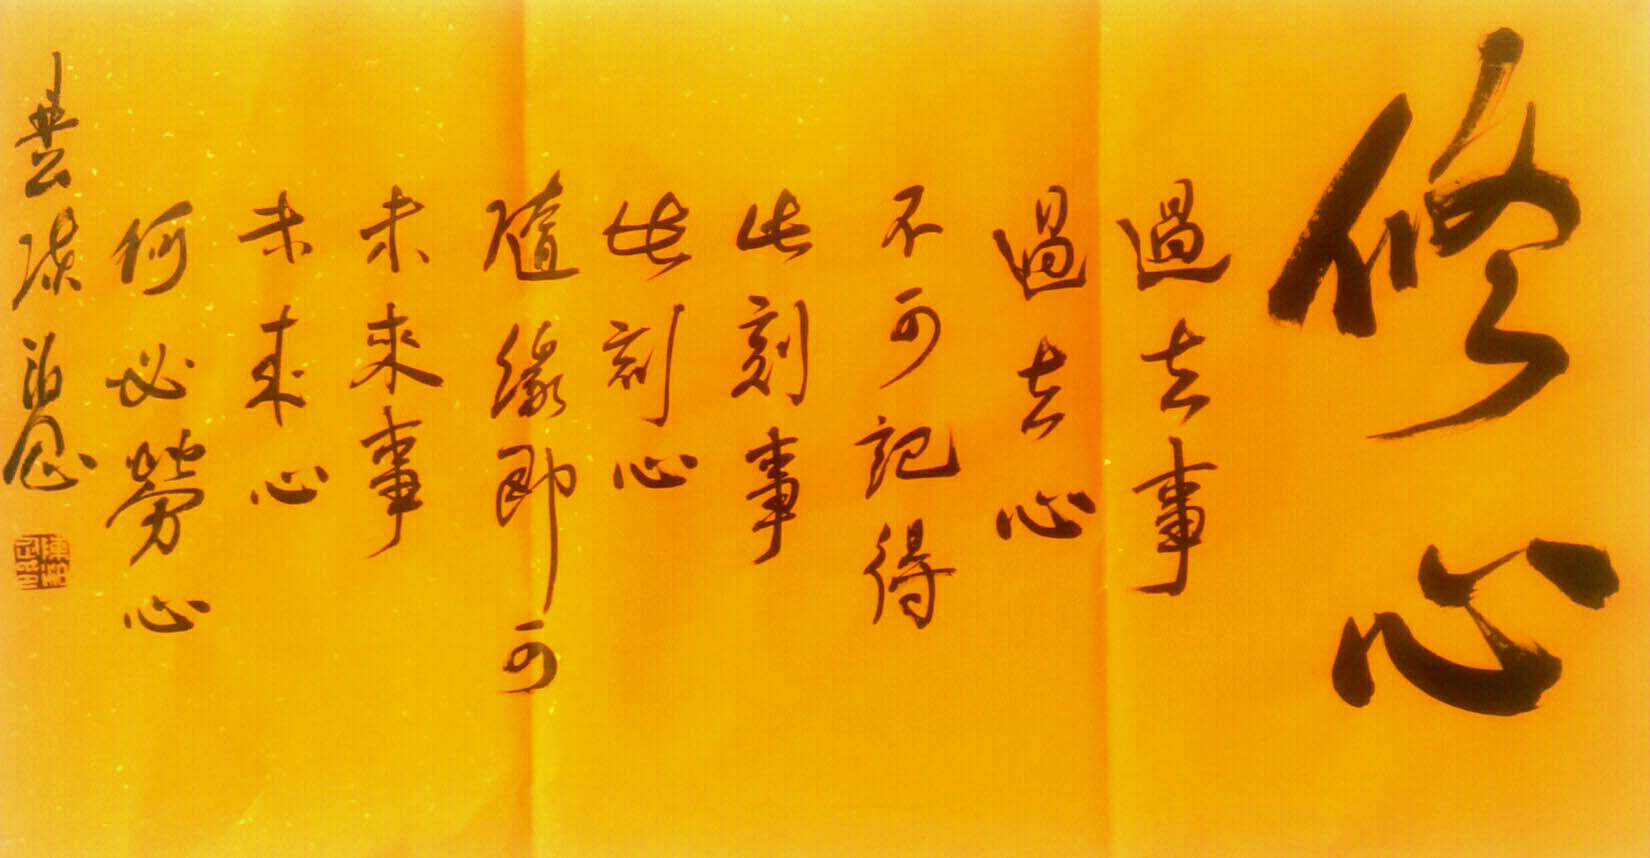 修心
過去事
過去心
不可記得
此刻事
此刻心
隨緣即可
未來事
未來心
何必勞心